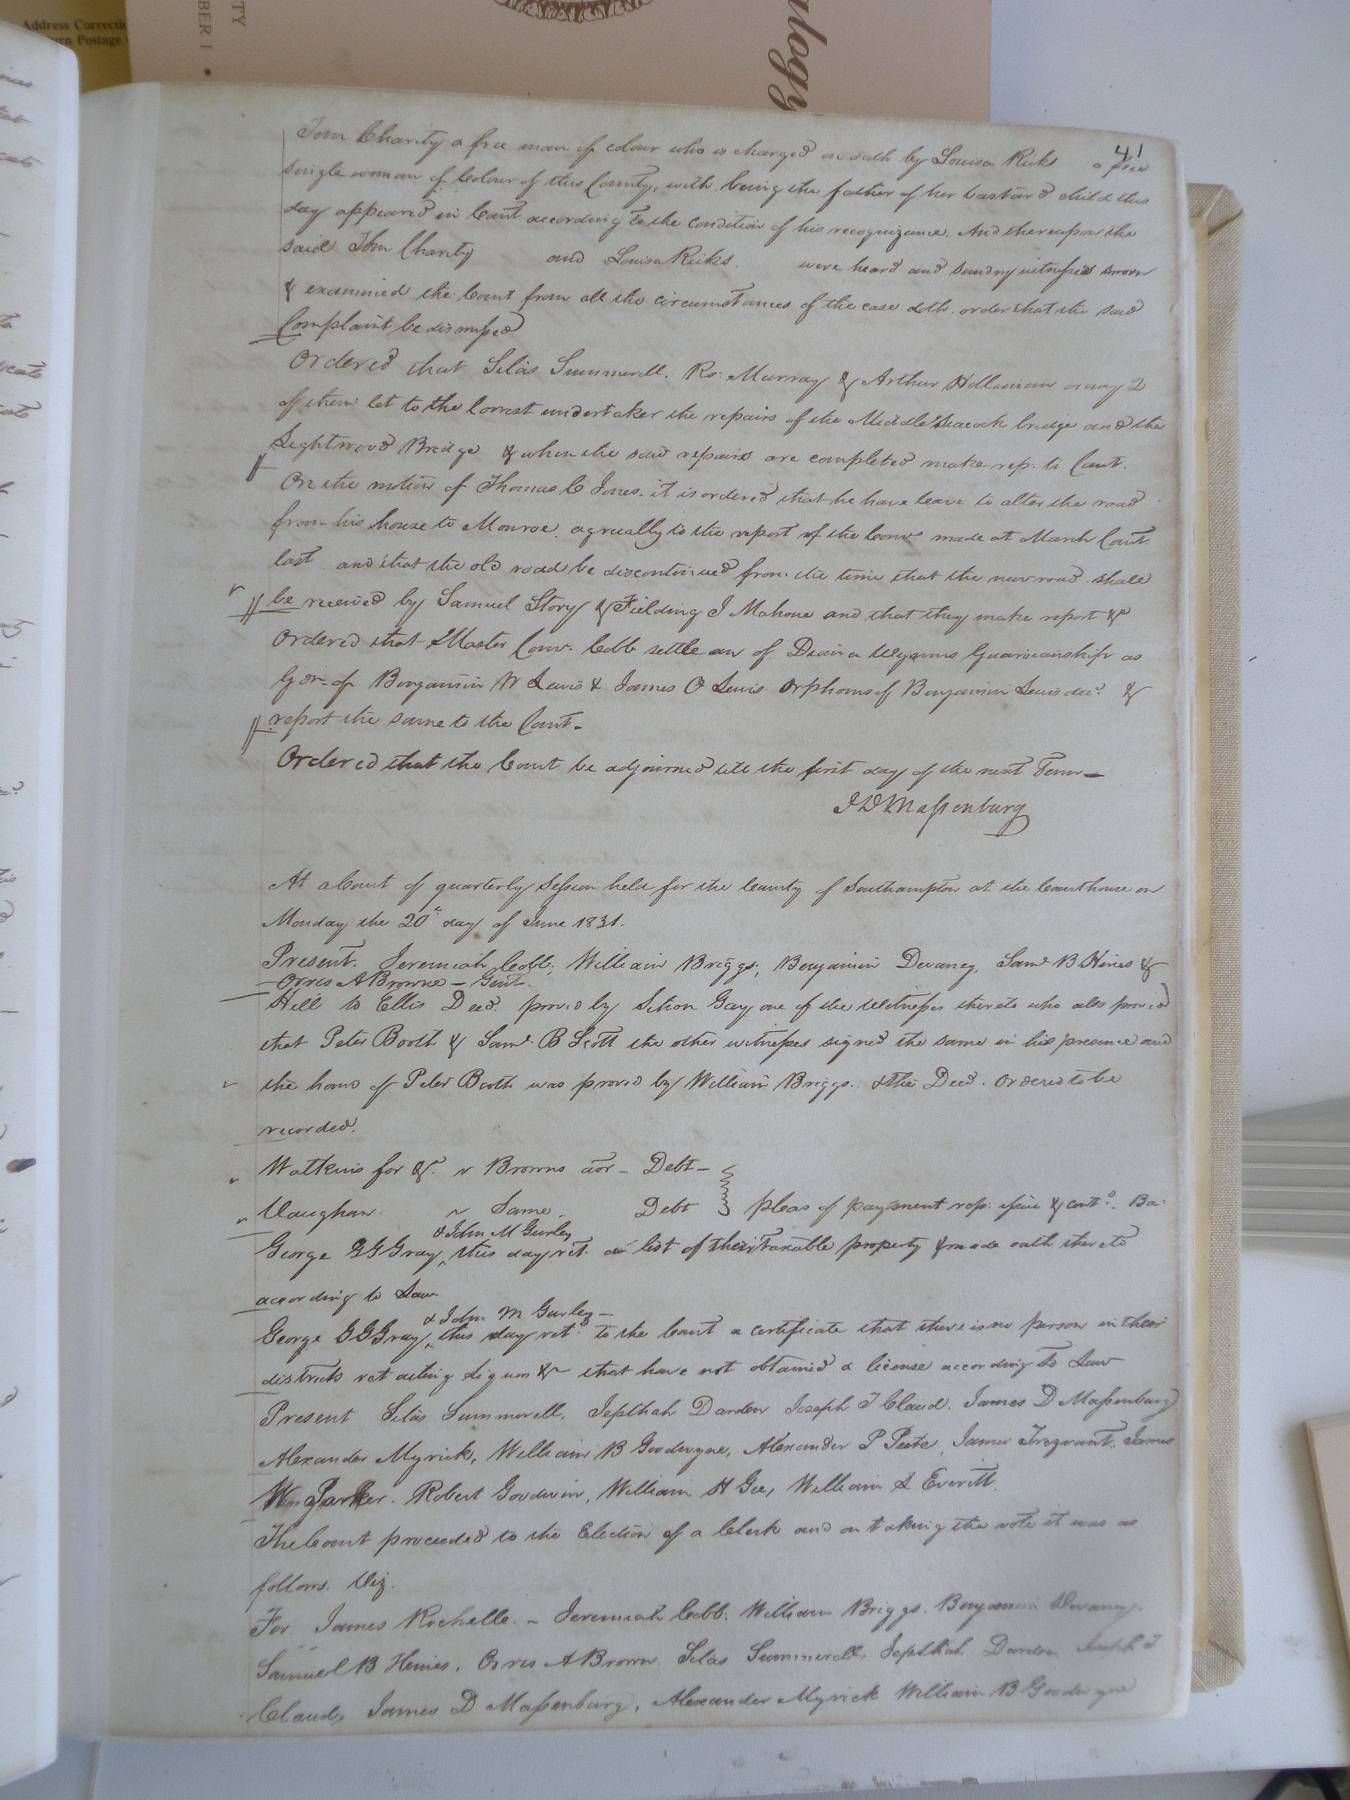 Address Correctio
urn Postage
TY
BER 1 •
alogy
41
Tom Charity a free man of colour who is charged on oath by Louisa Ricks a free
single woman of Colour of this County, with being the father of her bastard child this
day appeared in Court according to the condition of his recognizance. And thereupon the
said Tom Charity and Louisa Ricks. were heard and sundry witnesses sworn
& examined the Court from all the circumstances of the case doth order that the said
Complaint be dismissed
Ordered that Silas Summerell. Ro: Murray & Arthur Holleman or any 2
of them let to the lowest undertaker the repairs of the Middle Seacock bridge and the
Lightwood Bridge & when the said repairs are completed make rep. to Court.
On the motion of Thomas C Jones. it is ordered that he have leave to alter the road
from his house to Monroe. agreeally to the report of the Comrs made at March Court
last and that the old road be discontinued from the time that the new road shall
be received by Samuel Story & Fielding J Mahone and that they make report &c
Ordered that Master Comr. Cobb settle an of Wynns Guardianship as
Gdn. of Benjamin W Lewis & James O Lewis Orphans of Benjamin Lewis decd. &
report the same to the Court.
Ordered that the Court be adjourned till the first day of the next Term
J D Massenburg
At a Court of quarterly Session held for the County of Southampton at the Courthouse on
Monday the 20th day of June 1831.
Present. Jeremiah Cobb, William Briggs, Benjamin Devaney, Saml B Hines &
Orris A Browne - Gent.
Hill to Ellis Deed. proved by Gay one of the Witnesses thereto who also proved
that Peter Booth & Saml B Scott the other witnesses signed the same in his presence and
the hand of Peter Booth was proved by William Briggs. & the Deed. Ordered to be
recorded.
Watkins for &c. v Browns Debt
Vaughan. v Same. Debt pleas of payment & contd.
& John M Gurley
George G G Gray, this day ret. a list of their Taxable property & made oath thereto
according to Law
& John M Gurley
George G G Gray, this day retd to the Court a certificate that there is no person in their
districts retailing liquor &c that have not obtained a license according to Law
Present Silas Summerell, Jepthah Darden Joseph T Claud. James D Massenburg
Alexander Myrick, William B Goodwyne, Alexander P Peete, James Trezvant, James
W Parker. Robert Goodwin, William H Gee, William S Everitt.
The Court proceeded to the Election of a Clerk and on taking the vote it was as
follows. Viz.
For James Rochelle. - Jeremiah Cobb. William Briggs. Benjamin Devaney.
Samuel B Hines, Orris A Brown. Silas Summerell, Jepthah Darden Joseph T
Claud, James D Massenburg, Alexander Myrick William B Goodwyne